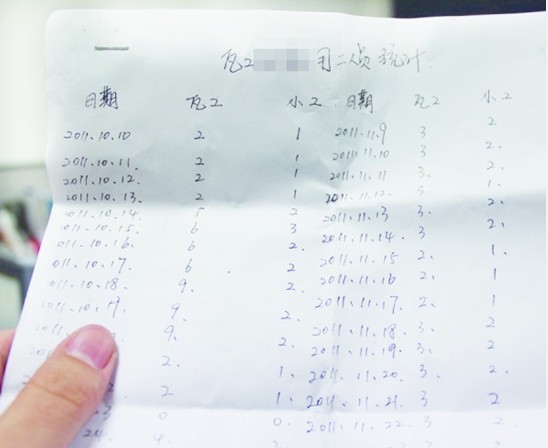 瓦工 用工员统计
日期 瓦工 小工 日期 瓦工 小工
2011.10.10 2 1 2011.11.9 3 2
2011.10.11. 2 1 2011.11.10 3 2.
2011.10.12. 2 1 2011.11.11 3. 2.
2011.10.13. 2 1 2011.11.12. 3. 1.
011.10.14. 5 2 2011.11.13 3. 2.
011.10.15. 6 3 2011.11.14. 3 2.
011.10.16. 6 2. 2011.11.15 2. 1.
011.10.17. 6 2 2011.11.16 2. 1
011.10.18. 9. 2. 2011.11.17 2. 1
011.10.19. 9. 2. 2011.11.18. 3. 2
9. 2. 2011.11.19. 3. 2
2. 1. 2011.11.20. 3 2
2 1. 2011.11.21. 3 2
0 0. 2011.11.22. 3 2
4.